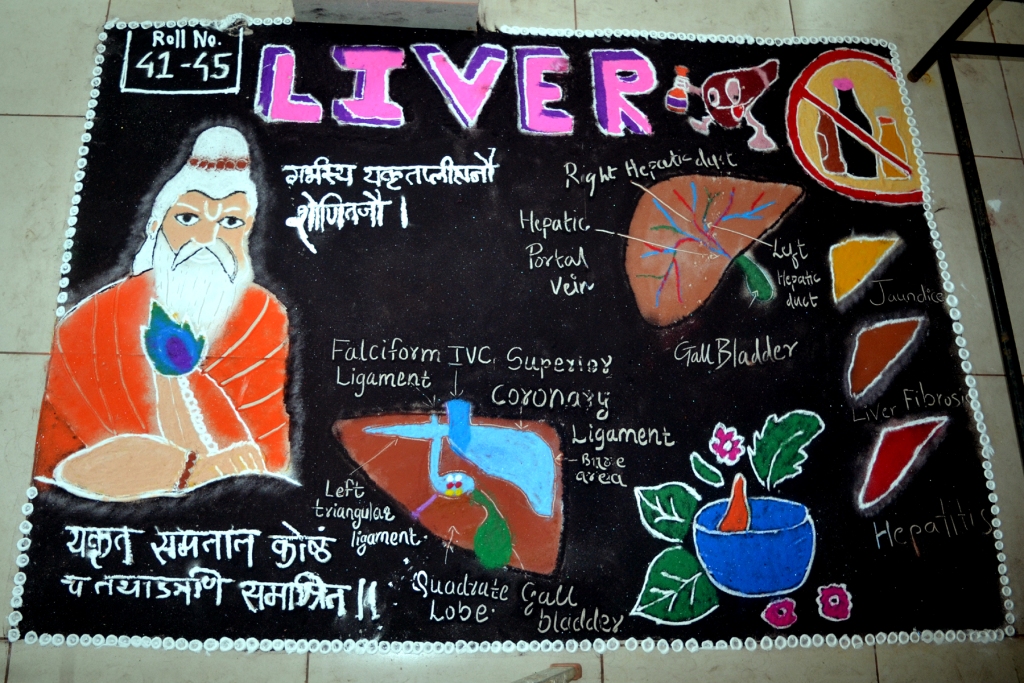 Roll No.
41-45
LIVER
गर्भस्य यकृतप्लीहानौ
शोणितजौ ।
Right Hepatic duct
Hepatic
Portal
vein
Left
Hepatic
duct
Gall Bladder
Jaundice
Liver Fibrosis
Hepatitis
Falciform
Ligament
IVC
Superior
Coronary
Ligament
Bare
area
Left
triangular
ligament
Quadrate
Lobe
Gall
bladder
यकृत समन्तात कोष्ठं
च समाश्रित ॥